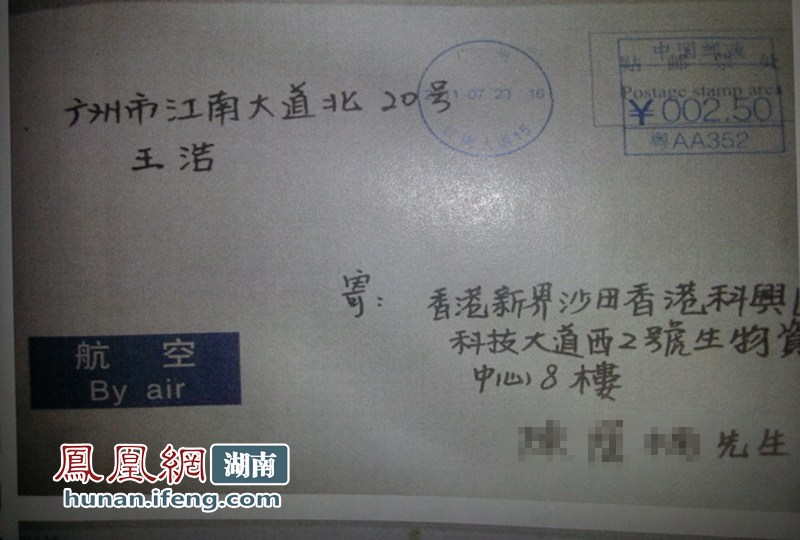 广州市江南大道北 20号
王浩
广 州
11.07 23 16
15
中国邮政
贴 邮 票 处
Postage stamp area
¥002.50
粤AA352
寄:
香港新界沙田香港科興
科技大道西2號生物資
中心8樓
先生
航 空
By air
鳳凰網 湖南
hunan.ifeng.com